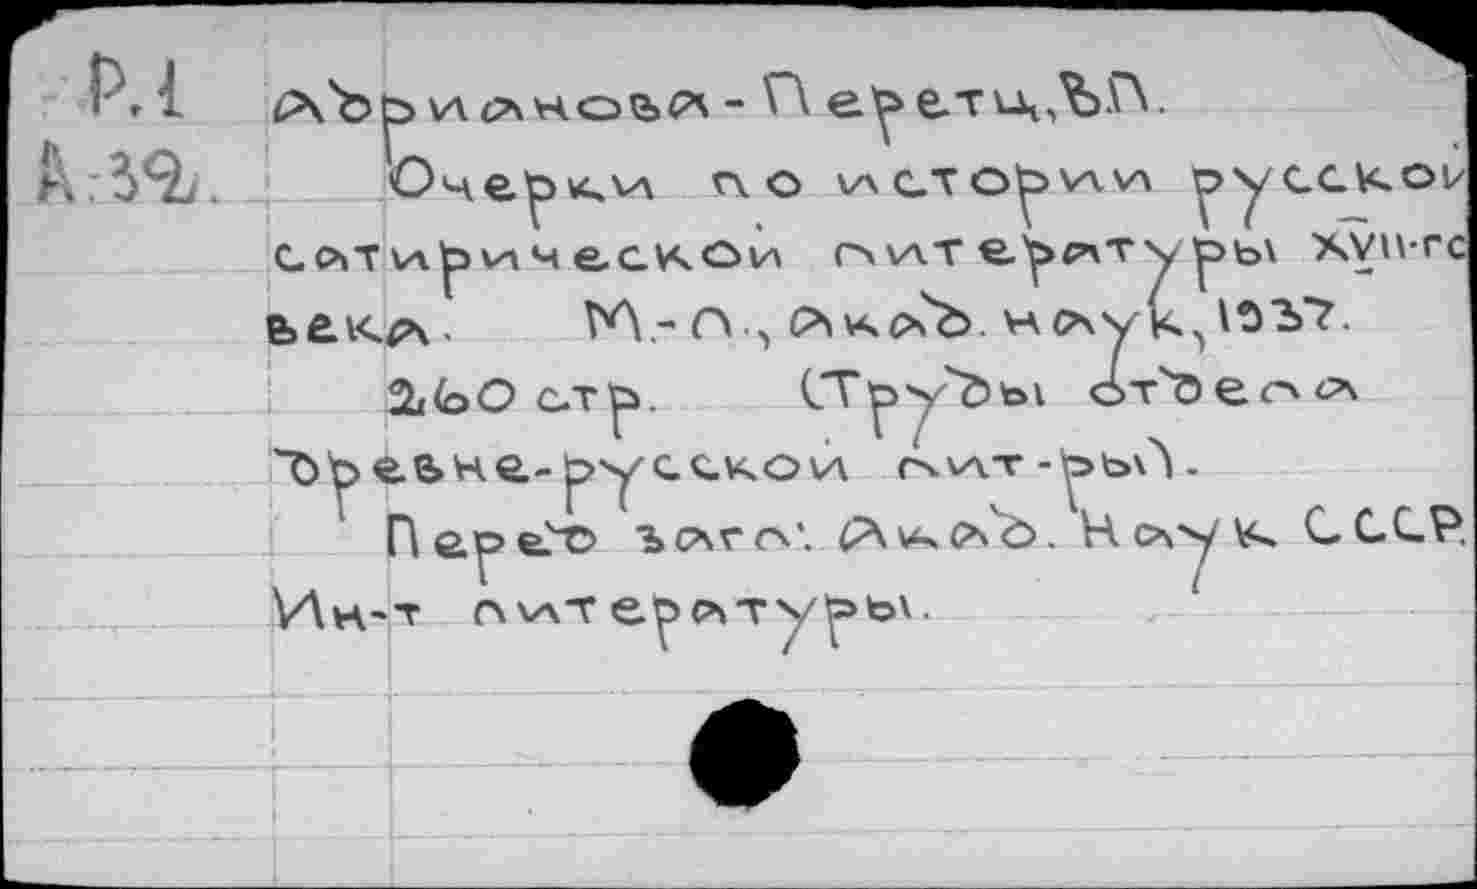 Р.1 Адрианова-Перетц,В.П.
А.32. Очерки по истории русской
сатирической литературы XVII-го
века. М.-Л., Акад. наук, 1937.
260 стр. (Труды отдела
древне-русской лит-ры).
Перед загл: Акад. Наук СССР.
Ин-т литературы.